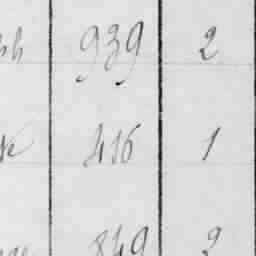 939 2
416 1
849 2